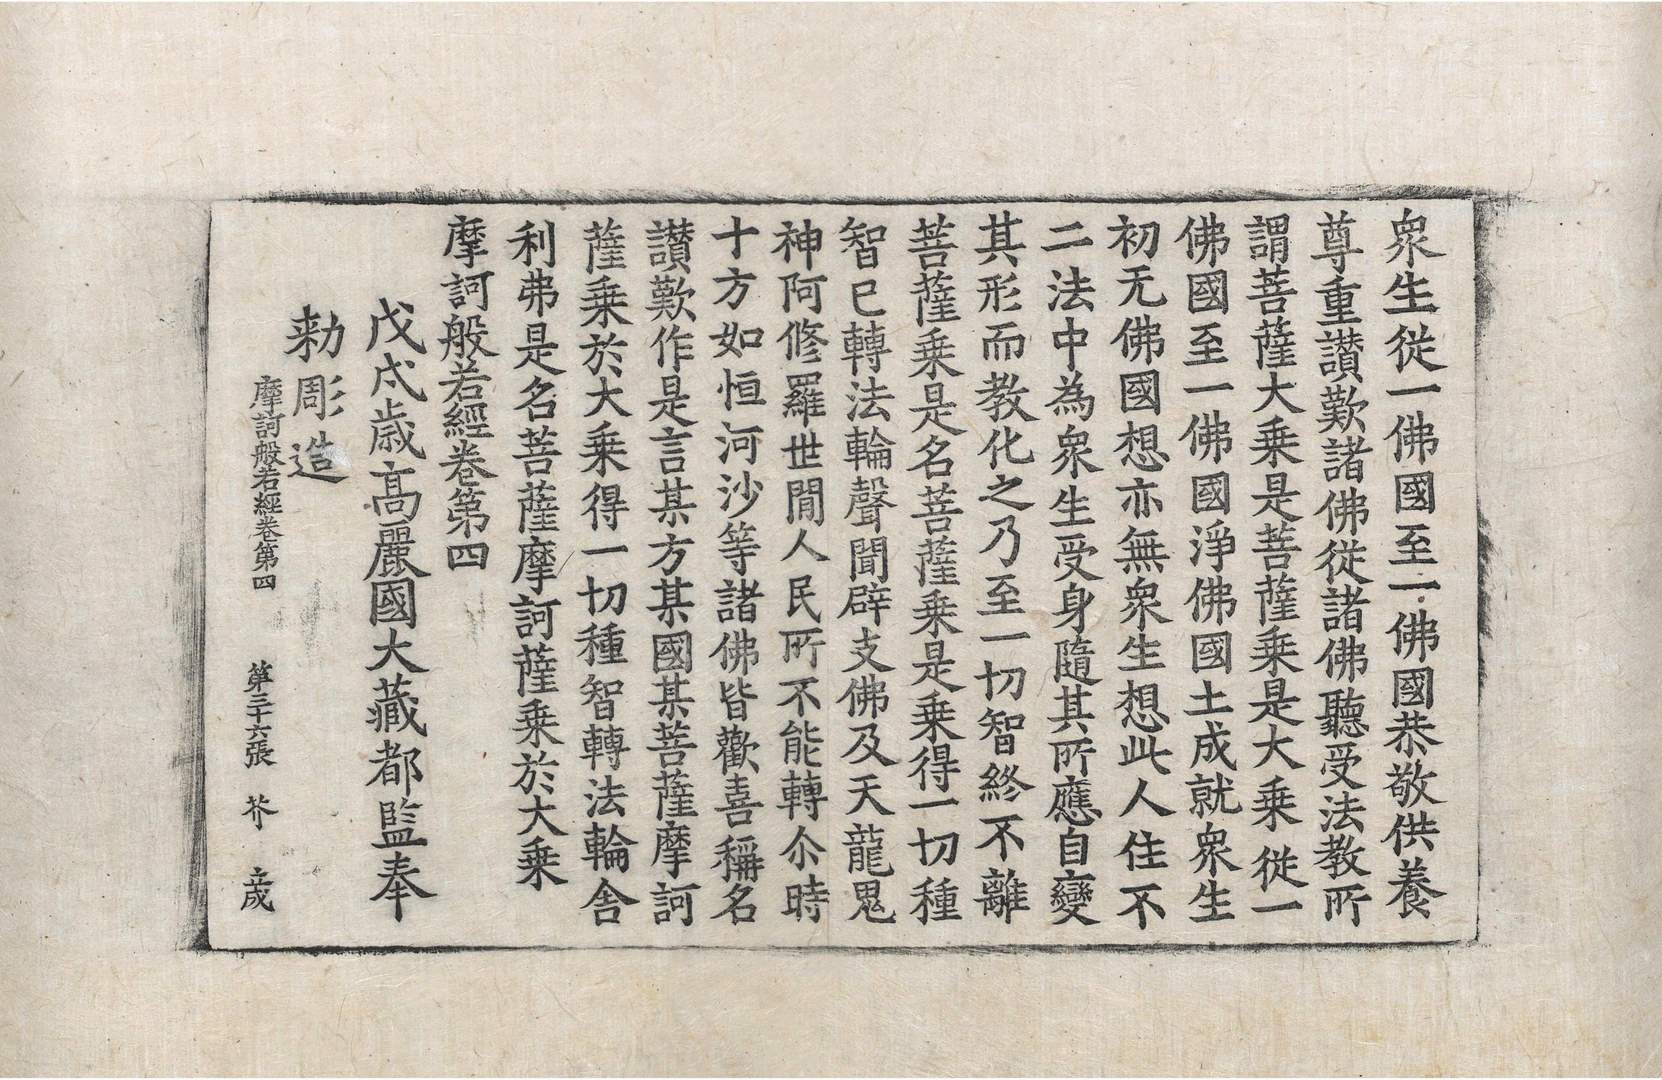 衆生從一佛國至一佛國恭敬供養
尊重讃歎諸佛從諸佛聽受法教所
謂菩薩大乗是菩薩乗是大乗從一
佛國至一佛國淨佛國土成就衆生
初无佛國想亦無衆生想此人住不
二法中為衆生受身隨其所應自變
其形而教化之乃至一切智終不離
菩薩乗是名菩薩乗是乗得一切種
智已轉法輪聲聞辟支佛及天龍鬼
神阿修羅世閒人民所不能轉尒時
十方如恒河沙等諸佛皆歡喜稱名
讃歎作是言某方某國某菩薩摩訶
薩乗於大乗得一切種智轉法輪舎
利弗是名菩薩摩訶薩乗於大乗
摩訶般若經卷第四
戊戌歳髙麗國大藏都監奉
勑彫造
摩訶般若經卷第四　第二十六張　芥　成